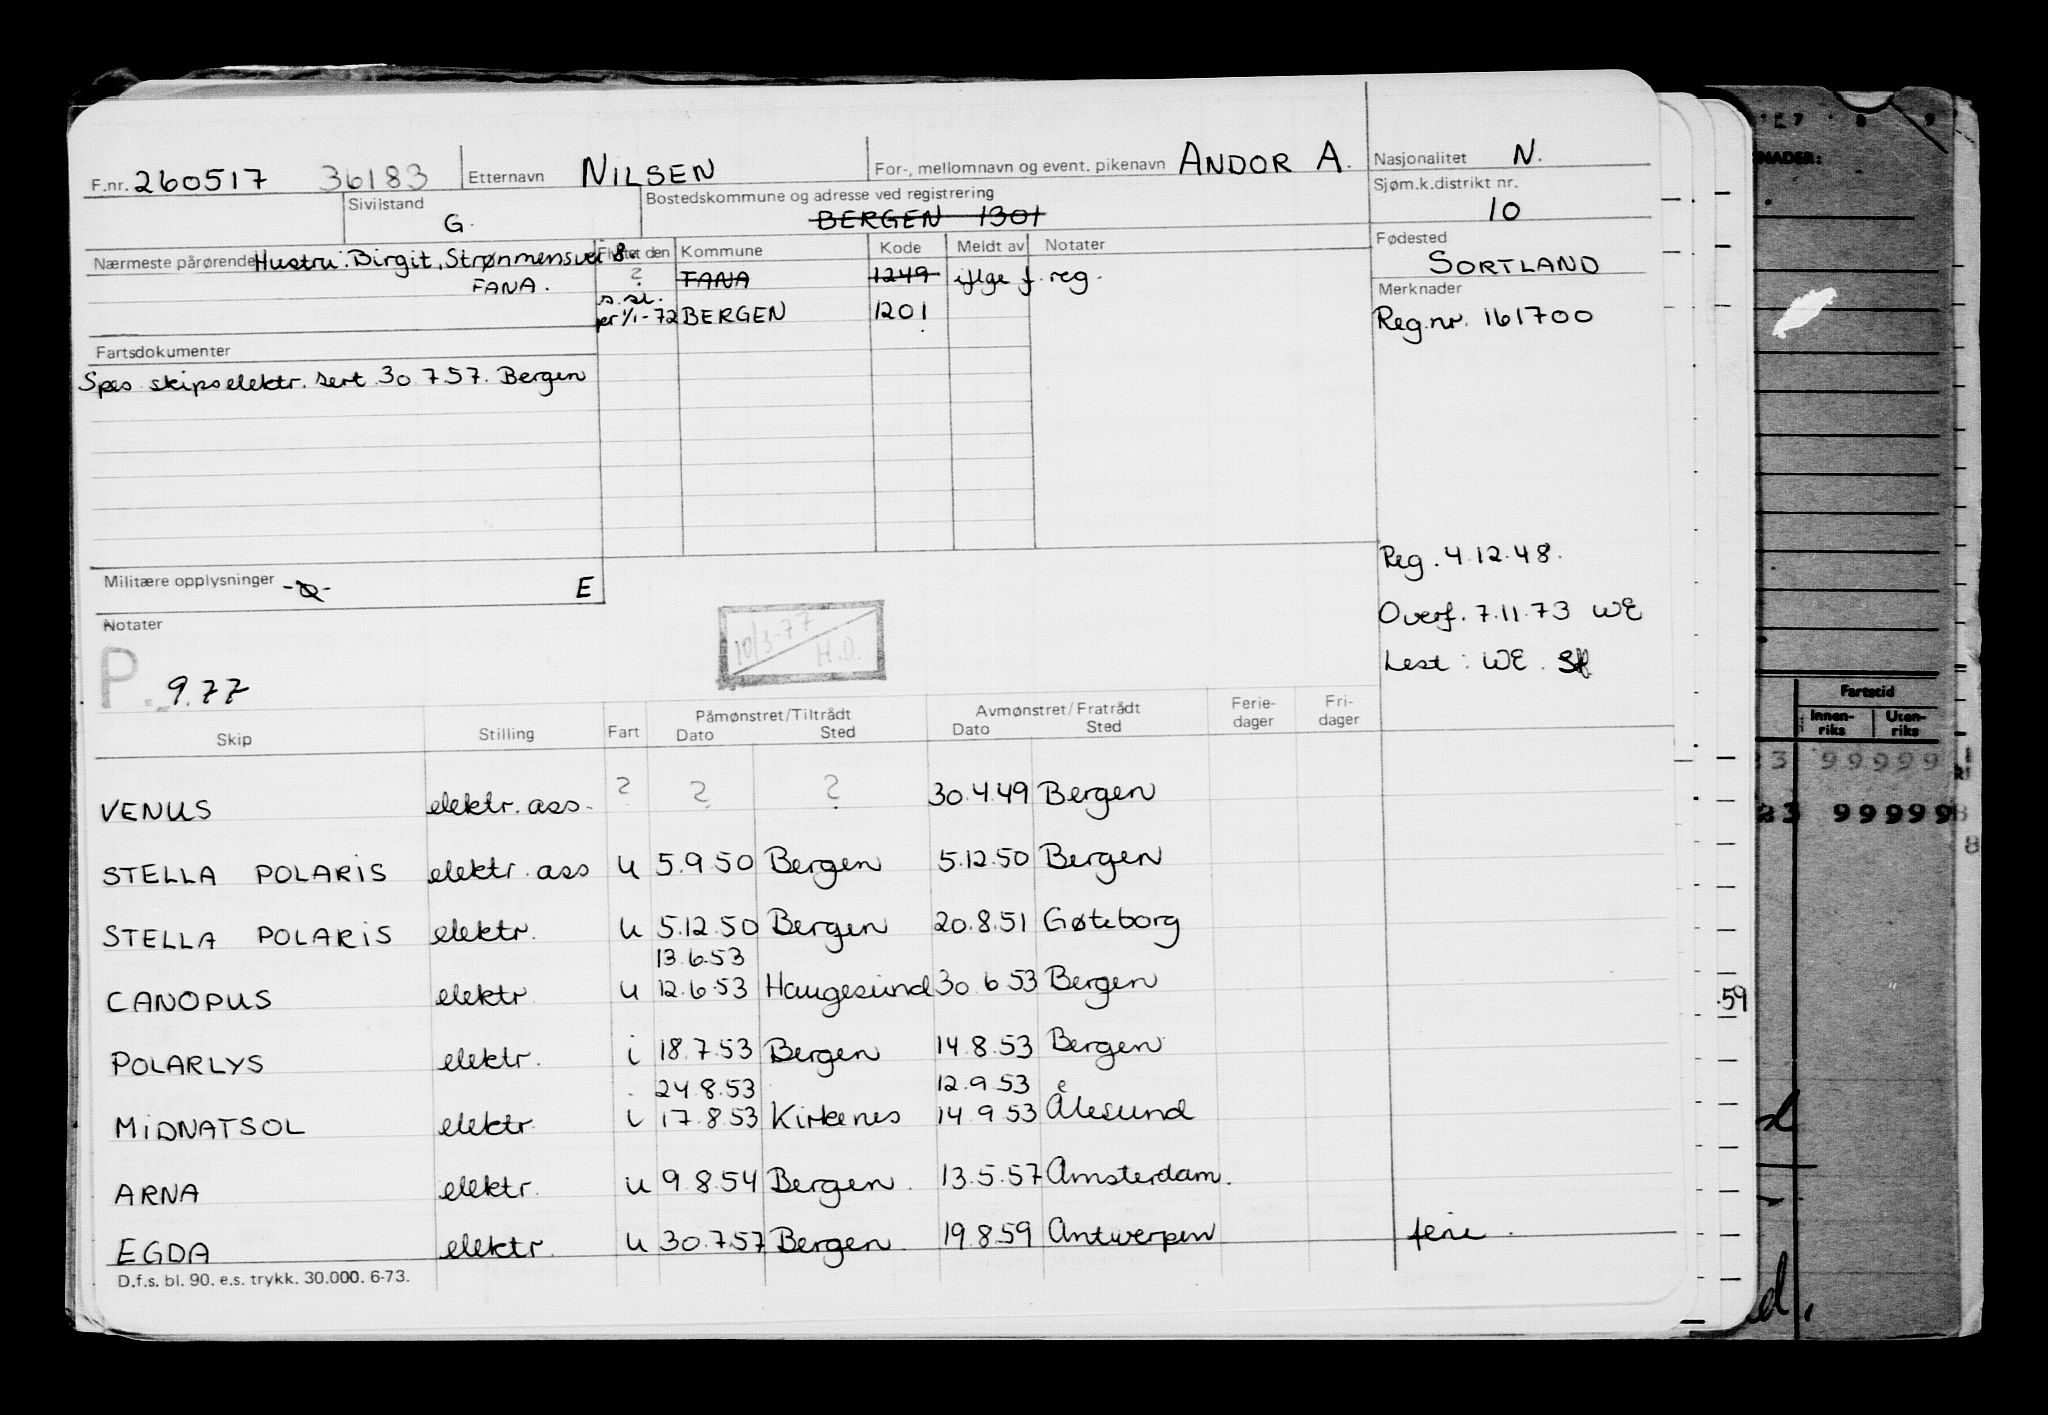 F.nr. 260517 36183 Etternavn NILSEN For-, mellomnavn og event. pikenavn ANDOR A. Nasjonalitet N.
Sivilstand G. Bostedskommune og adresse ved registrering BERGEN 1301 Sjøm.k.distrikt nr. 10
Nærmeste pårørende Hustru: Birgit, Strønmensvei 8. Flyttet den Kommune Kode Meldt av Notater Fødested
FANA. ? FANA 1249 iflge f. reg. SORTLAND
s.st. Merknader
per 1/1-72 BERGEN 1201 Reg.nr. 161700
Fartsdokumenter
Spes skipselektr. sert 30.7.57. Bergen
Reg. 4.12.48.
Militære opplysninger E
Overf. 7.11.73 WE
Notater
10/3-77 H.D.
Lest: WE. Sf
P. 9.77
Skip Stilling Fart Påmønstret/Tiltrådt Dato Sted Avmønstret/Fratrådt Dato Sted Ferie-dager Fri-dager
VENUS elektr. ass. ? ? ? 30.4.49 Bergen
STELLA POLARIS elektr. ass u 5.9.50 Bergen 5.12.50 Bergen
STELLA POLARIS elektr. u 5.12.50 Bergen 20.8.51 Gøteborg
13.6.53
CANOPUS elektr. u 12.6.53 Haugesund 30.6.53 Bergen
POLARLYS elektr. i 18.7.53 Bergen 14.8.53 Bergen
24.8.53 12.9.53
MIDNATSOL elektr. i 17.8.53 Kirkenes 14.9.53 Ålesund
ARNA elektr. u 9.8.54 Bergen. 13.5.57 Amsterdam.
EGDA elektr. u 30.7.57 Bergen. 19.8.59 Antwerpen ferie.
D.f.s. bl. 90. e.s. trykk. 30.000. 6-73.
.59
Fartstid
Innen-riks Uten-riks
3 99999
23 99999